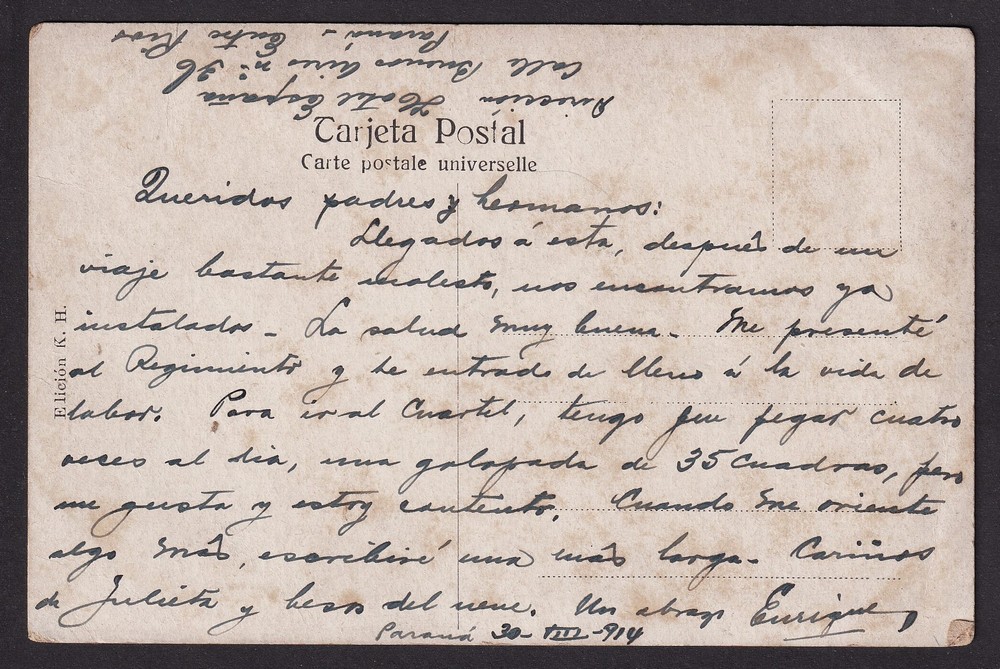 Dirección Hotel España
Calle Buenos Aires nº 36
Paraná - Entre Rios
Tarjeta Postal
Carte postale universelle
Queridos padres y hermanos:
Llegados á esta, después de un
viaje bastante molesto, nos encontramos ya
instalados - La salud muy buena - Me presenté
al Regimiento y he entrado de lleno á la vida de
labor. Para ir al Cuartel, tengo que pegar cuatro
veces al dia, una galopada de 35 cuadras, pero
me gusta y estoy contento. Cuando me oriente
algo más, escribiré una más larga - Cariños
de Julieta y besos del nene. Un abrazo Enrique
Paraná 30-VIII-914
Elición K. H.